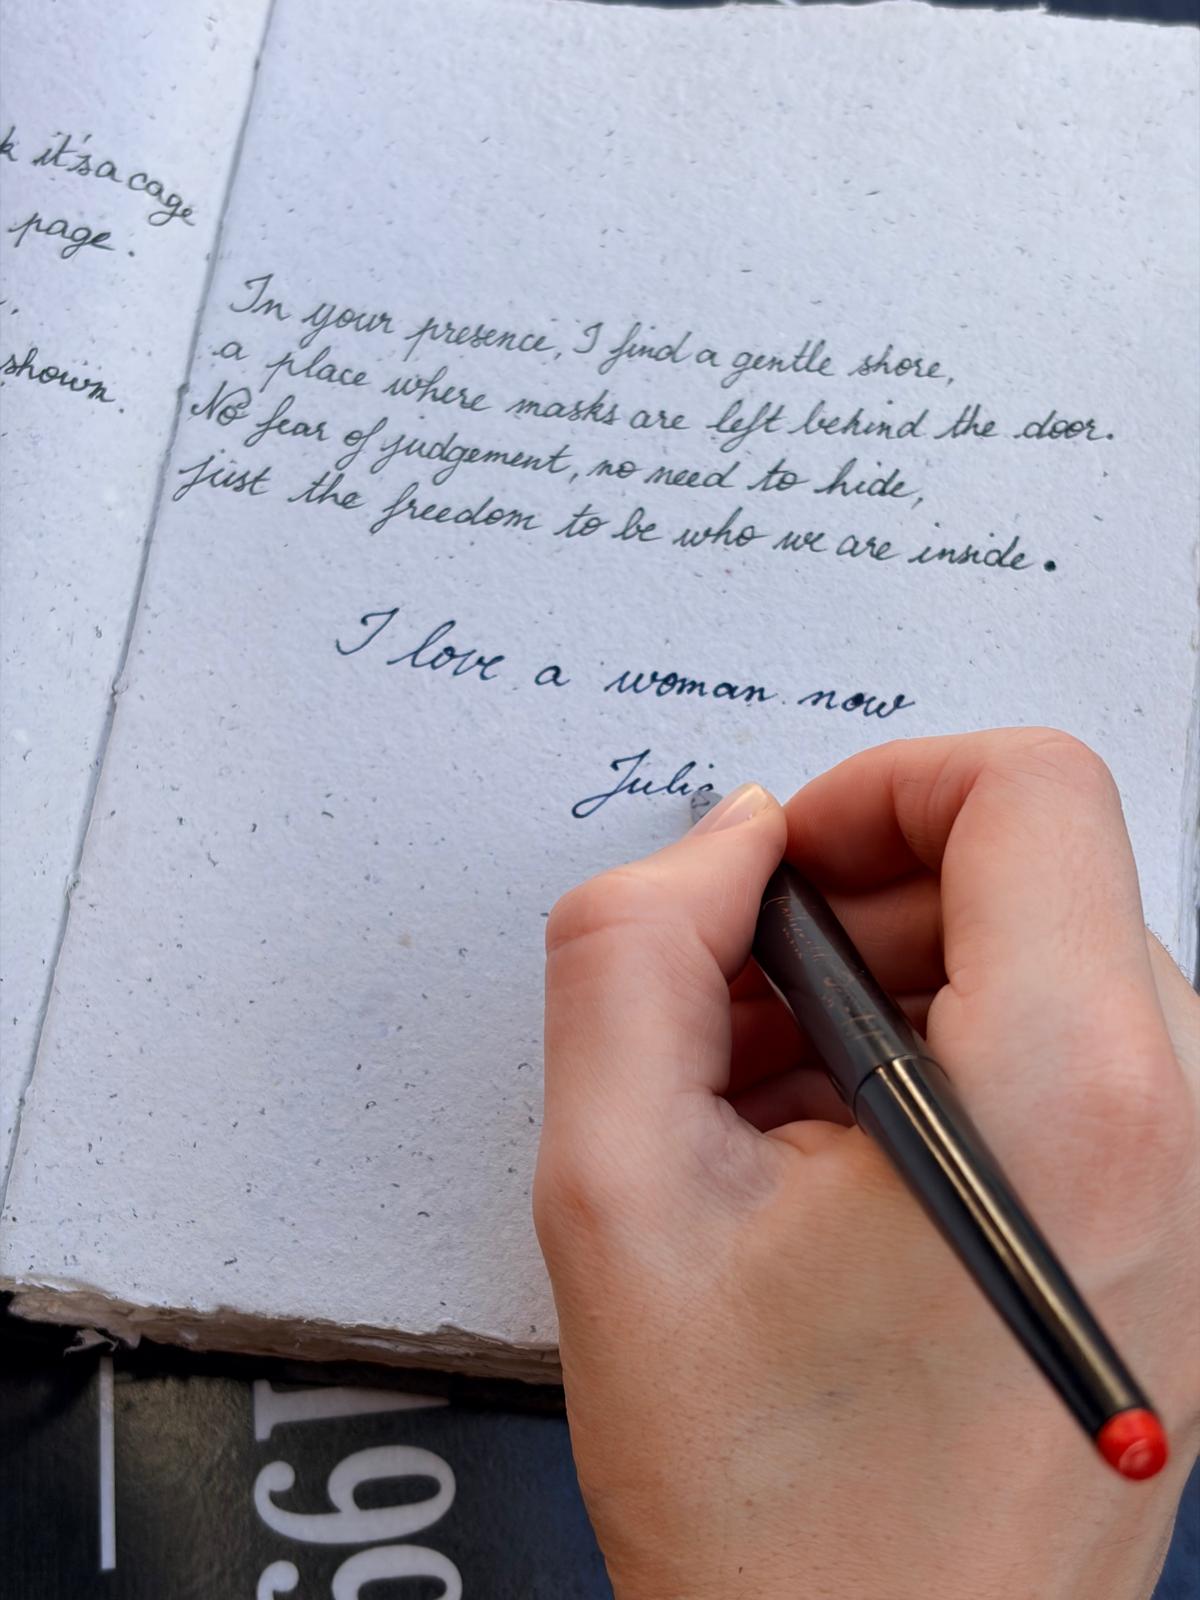 it's a cage
page.
shown.
In your presence, I find a gentle shore,
a place where masks are left behind the door.
No fear of judgement, no need to hide,
just the freedom to be who we are inside.
I love a woman now
Julia